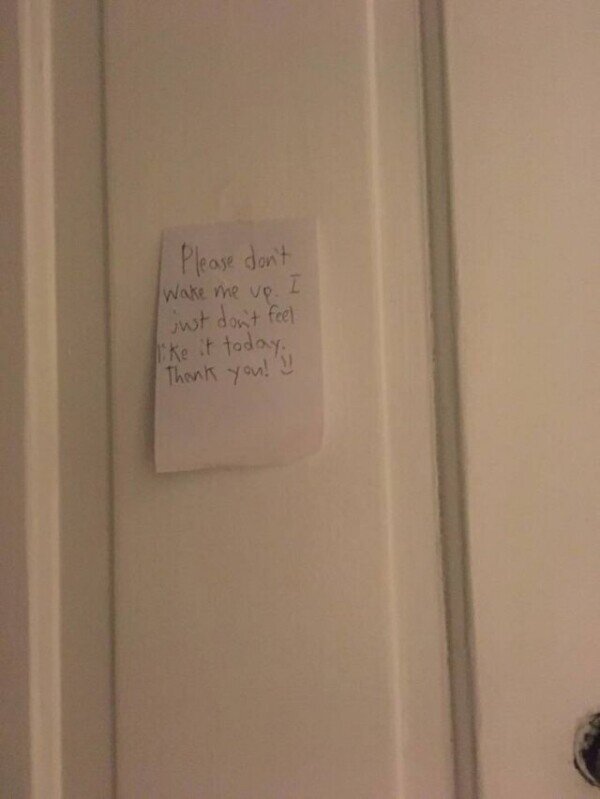 Please don't
wake me up. I
just don't feel
like it today.
Thank you! :)